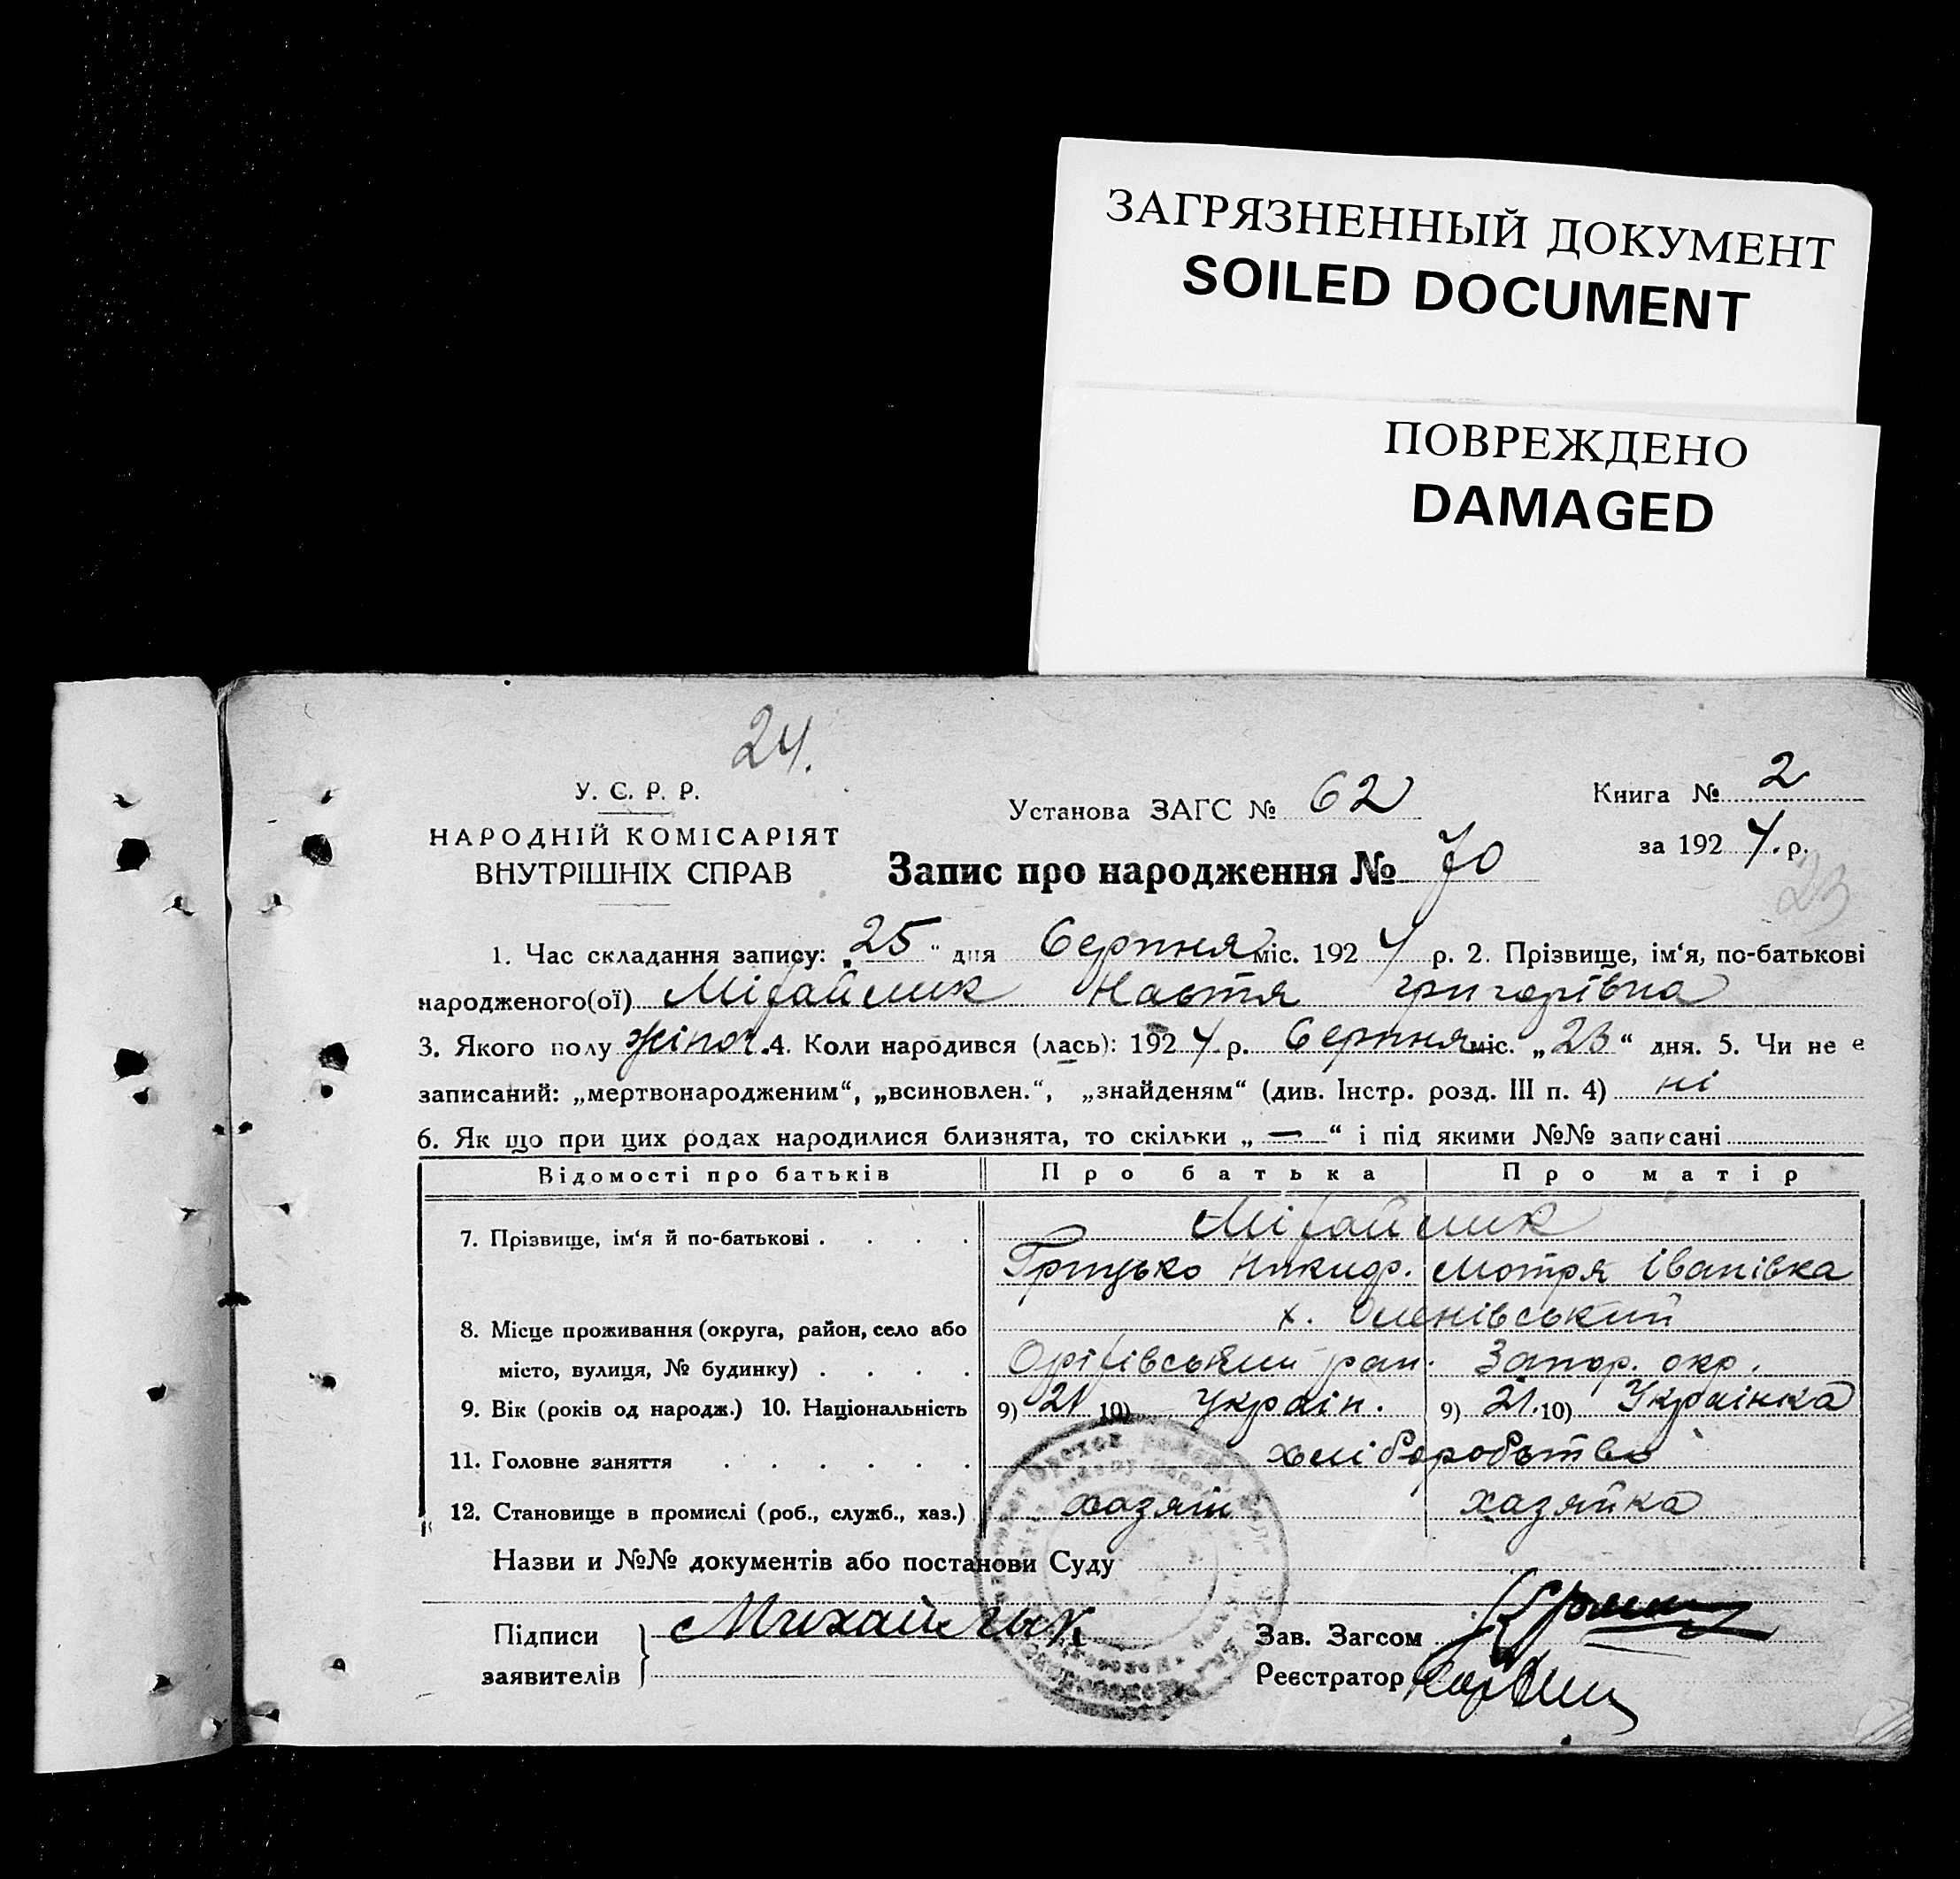 ЗАГРЯЗНЕННЫЙ ДОКУМЕНТ
SOILED DOCUMENT
ПОВРЕЖДЕНО
DAMAGED
24.
У. С. Р. Р.
НАРОДНІЙ КОМІСАРІЯТ
ВНУТРІШНІХ СПРАВ
Установа ЗАГС № 62
Книга № 2
за 1927 р.
Запис про народження № 70
23
1. Час складання запису: „25“ дня Серпня міс. 1927 р. 2. Прізвище, ім‘я, по-батькові
народженого(ої) Міхайлик Настя Григорівна
3. Якого полу жіноч. 4. Коли народився (лась): 1927 р. Серпня міс. „23“ дня. 5. Чи не є
записаний: „мертвонародженим“, „всиновлен.“, „знайденям“ (див. Інстр. розд. III п. 4) ні
6. Як що при цих родах народилися близнята, то скільки „—“ і під якими №№ записані
Відомості про батьків Про батька Про матір
7. Прізвище, ім‘я й по-батькові . . . . Міхайлик
Грицько Никиф. Мотря Іванівка
8. Місце проживання (округа, район, село або х. Оленівський
місто, вулиця, № будинку) . . . . Оріхівський рай. Запор. окр.
9. Вік (років од народж.) 10. Національність 9) 21 10) Україн. 9) 21. 10) Українка
11. Головне заняття . . . . . . хліборобство
12. Становище в промислі (роб., служб., хаз.) хазяїн хазяйка
Назви и №№ документів або постанови Суду
Підписи
заявителів
Михайлык
Зав. Загсом
Реєстратор